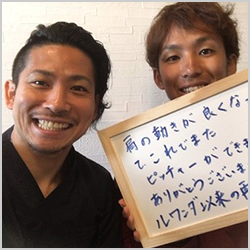 肩の動きが良くな
てこれでまた
ピッチャーができま
ありがとうございま
ルワンダ以来の